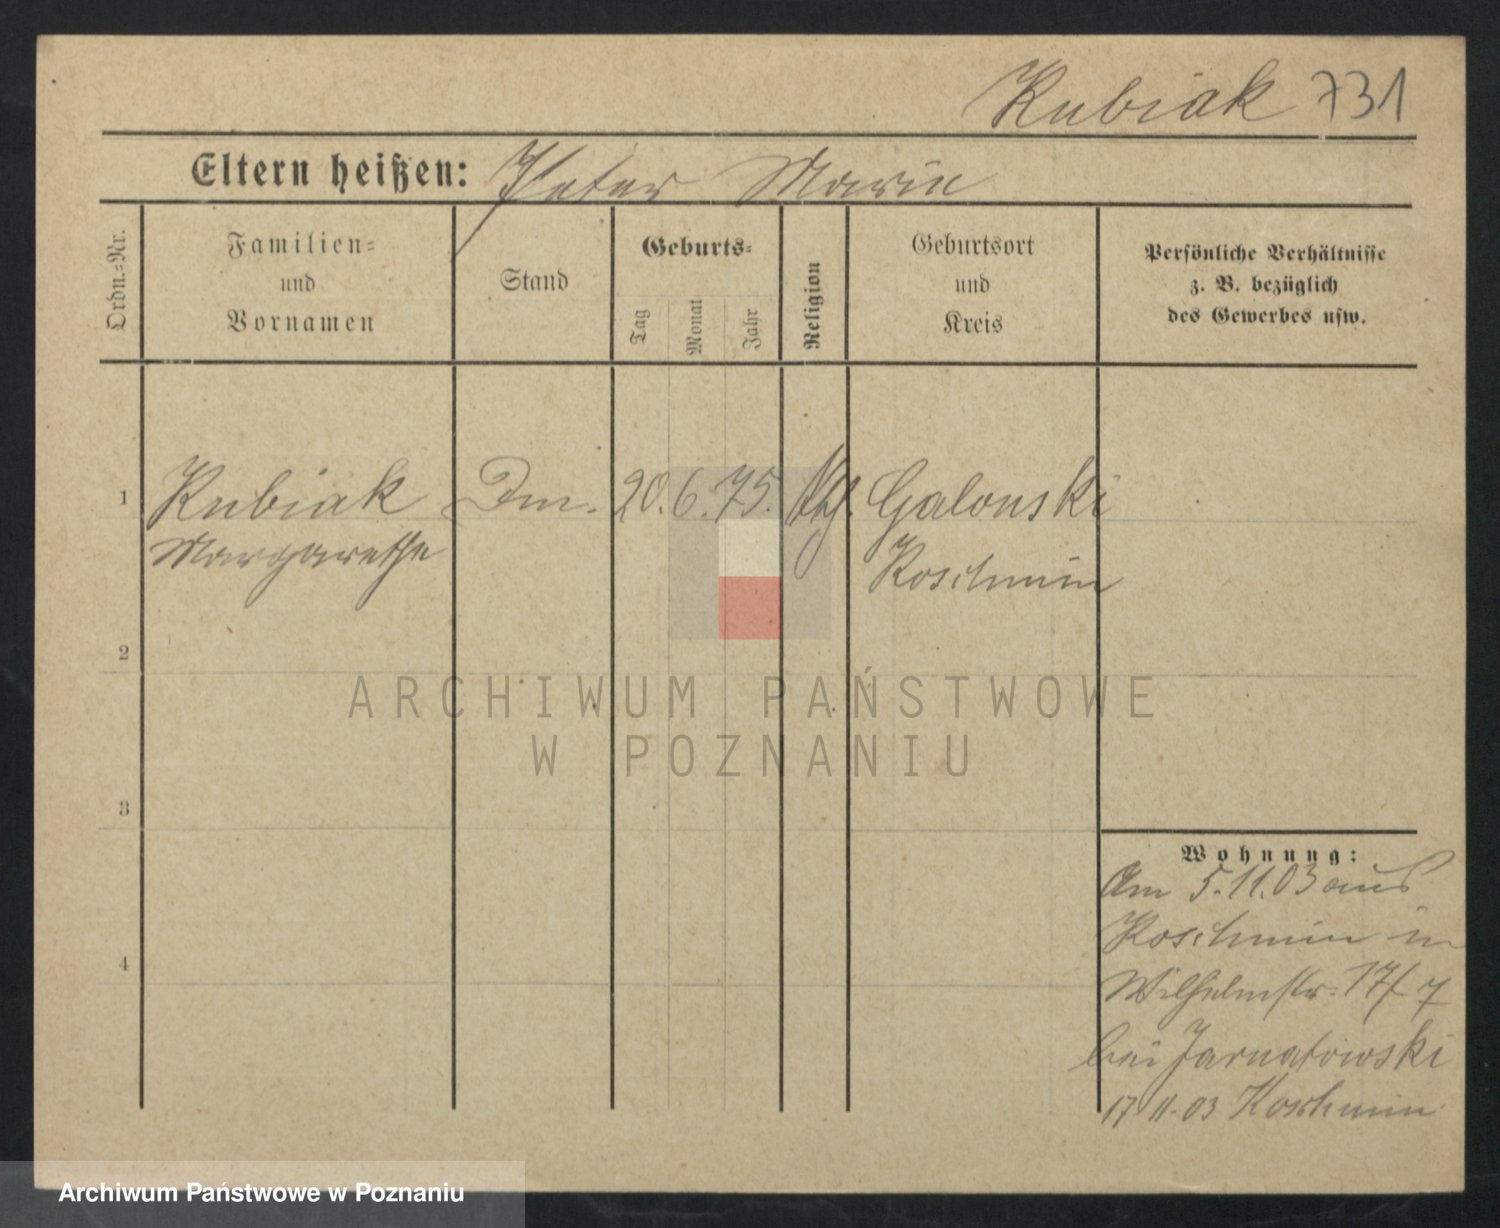 Kubiak 731
Eltern heißen: Peter Marie
Ordn.=Nr.
Familien=
und
Vornamen
Stand
Geburts=
Tag
Monat
Jahr
Religion
Geburtsort
und
Kreis
Persönliche Verhältnisse
z. B. bezüglich
des Gewerbes usw.
1 Kubiak Dm. 20. 6. 75. Galonski
Margarethe Koschmin
2
3
4
Wohnung:
Am 5.11.03 aus
Koschmin in
Wilhelmstr. 17/7
bei Jarnatowski
17.11.03 Koschmin
ARCHIWUM PAŃSTWOWE
W POZNANIU
Archiwum Państwowe w Poznaniu